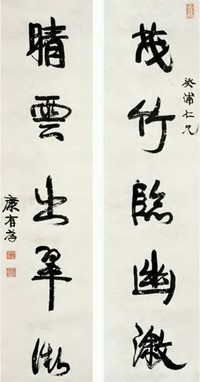 茂竹臨幽澈
癸浦仁兄
晴雲出翠微
康有為